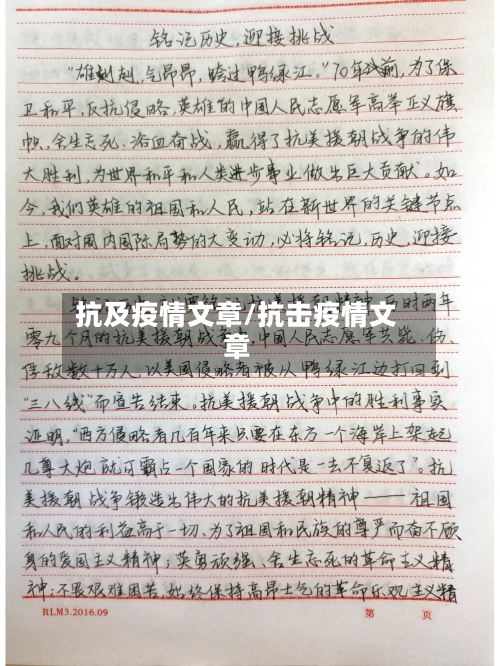 铭记历史,迎接挑战
“雄赳赳,气昂昂,跨过鸭绿江。”70年战前,为了保
卫和平,反抗侵略,英雄的中国人民志愿军高举正义旗
帜,舍生忘死、浴血奋战,赢得了抗美援朝战争的伟
大胜利,为世界和平和人类进步事业做出巨大贡献。如
今,我们英雄的祖国和人民,站在新世界的关键节点
上,面对国内国际局势的大变动,必将铭记,历史,迎接
挑战。
抗及疫情文章/抗击疫情文
章
历时两年
零九个月的抗美援朝战争中,中国人民志愿军共毙、伤、
俘敌数十万人,以美国侵略者被从鸭绿江边打回到
“三八线”而宣告结束。抗美援朝战争中的胜利事实
证明,“西方侵略者几百年来只要在东方一个海岸上架起
几尊大炮就可霸占一个国家的时代是一去不复返了”。抗
美援朝战争锻造出伟大的抗美援朝精神——祖国
和人民的利益高于一切、为了祖国和民族的尊严而奋不顾
身的爱国主义精神;英勇顽强、舍生忘死的革命主义精
神;不畏艰难困苦,始终保持高昂士气的革命乐观主义精
RLM3.2016.09 第 页